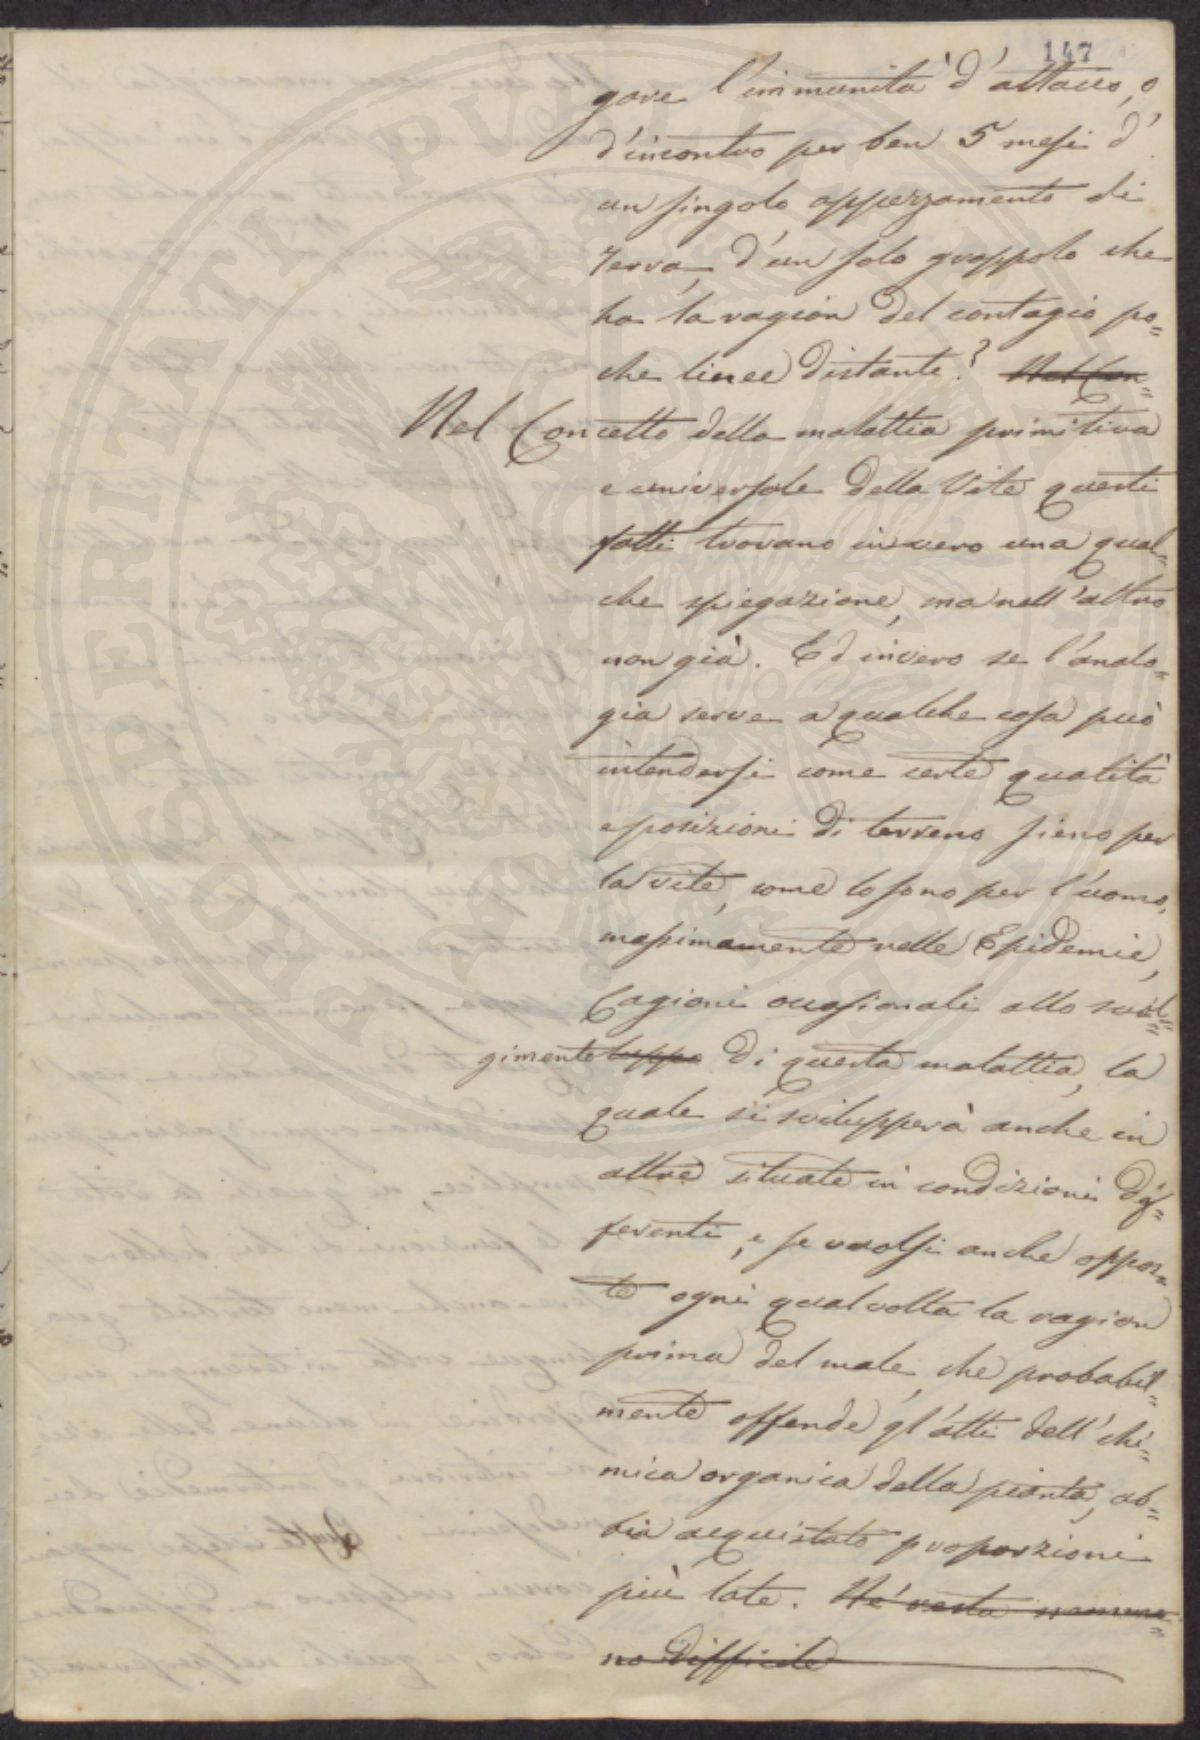 147
gare l'immunità d'attacco, o
d'incontro per ben 5 mesi d'
un singolo appezzamento di
Terra, d'un solo grappolo che
ha la ragion del contagio po=
che linee distante? Nel Con=
Nel Concetto della malattia primitiva
e universale della Vite questi
fatti trovano invero una qual=
che spiegazione, ma nell'altro
non già. Ed invero se l'analo=
gia serve a qualche cosa può
intendersi come certe qualità
e posizioni di terreno sieno per
la vite, come lo sono per l'uomo,
massimamente nelle Epidemie,
Cagioni occasionali allo svol=
gimento luppo di questa malattia, la
quale si svilupperà anche in
altre situate in condizioni dif=
ferenti, e se vuolsi anche oppos=
te ogni qualvolta la ragion
prima del male, che probabil=
mente offende gl'atti dell'chi=
mica organica della pianta, ab=
bia acquistato proporzioni
più late. Né resta nemme=
no difficile